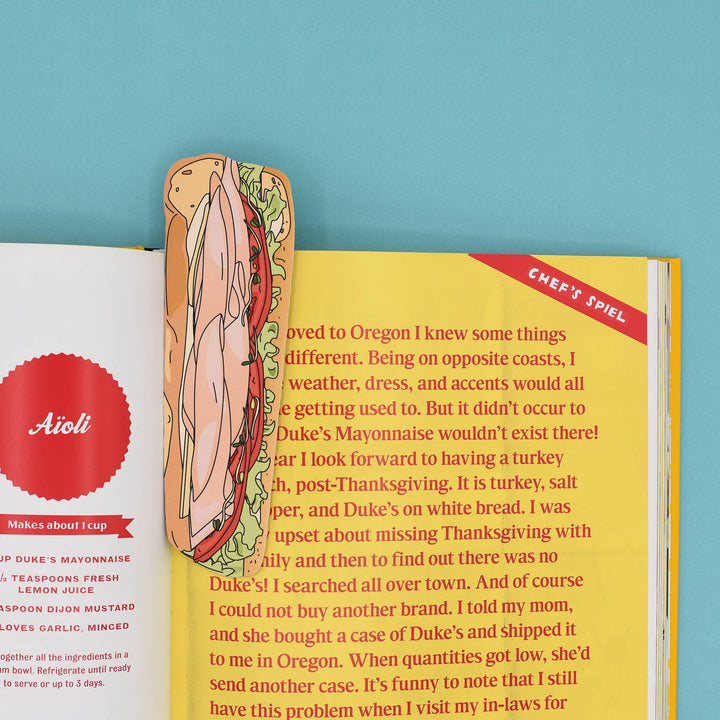 Aïoli
Makes about 1 cup
UP DUKE'S MAYONNAISE
½ TEASPOONS FRESH
LEMON JUICE
ASPOON DIJON MUSTARD
LOVES GARLIC, MINCED
ogether all the ingredients in a
m bowl. Refrigerate until ready
to serve or up to 3 days.
CHEF'S SPIEL
oved to Oregon I knew some things
different. Being on opposite coasts, I
weather, dress, and accents would all
e getting used to. But it didn't occur to
Duke's Mayonnaise wouldn't exist there!
ear I look forward to having a turkey
ch, post-Thanksgiving. It is turkey, salt
per, and Duke's on white bread. I was
upset about missing Thanksgiving with
mily and then to find out there was no
Duke's! I searched all over town. And of course
I could not buy another brand. I told my mom,
and she bought a case of Duke's and shipped it
to me in Oregon. When quantities got low, she'd
send another case. It's funny to note that I still
have this problem when I visit my in-laws for